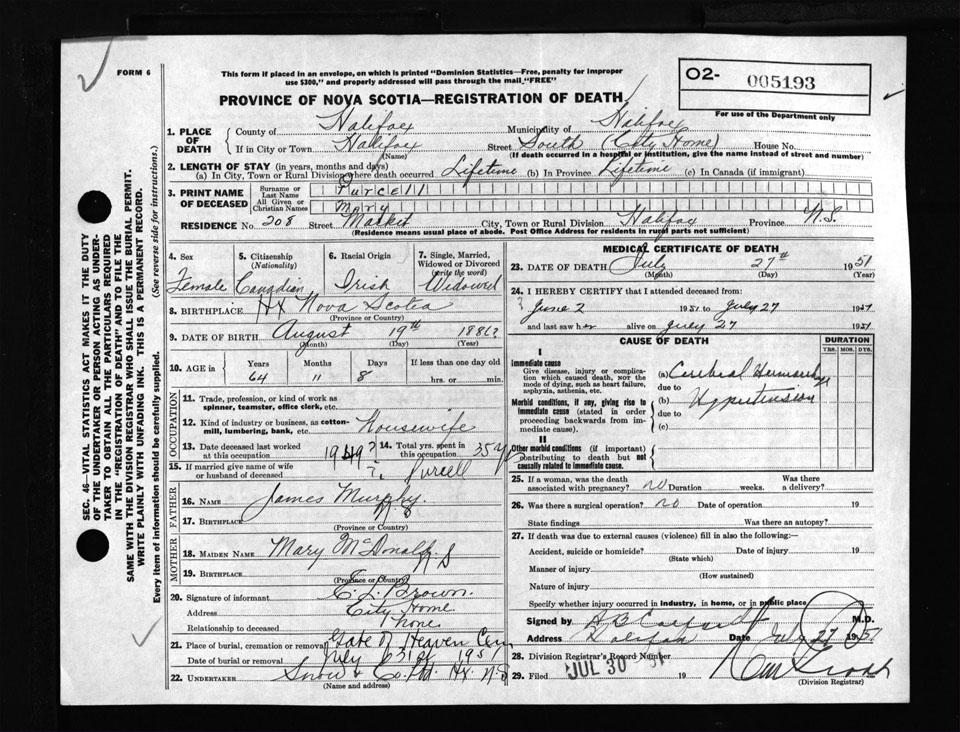 FORM 6
This form if placed in an envelope, on which is printed "Dominion Statistics—Free, penalty for improper
use $300," and properly addressed will pass through the mail "FREE"
O2- 005193
For use of the Department only
PROVINCE OF NOVA SCOTIA—REGISTRATION OF DEATH
1. PLACE OF DEATH
County of Halifax Municipality of Halifax
If in City or Town Halifax Street South (City Home) House No.
(Name) (If death occurred in a hospital or institution, give the name instead of street and number)
2. LENGTH OF STAY (in years, months and days)
(a) In City, Town or Rural Division where death occurred Lifetime (b) In Province Lifetime (c) In Canada (if immigrant)
3. PRINT NAME OF DECEASED
Surname or Last Name Purcell
All Given or Christian Names Mary
RESIDENCE No. 208 Street Market City, Town or Rural Division Halifax Province N.S.
(Residence means usual place of abode. Post Office Address for residents in rural parts not sufficient)
4. Sex Female
5. Citizenship (Nationality) Canadian
6. Racial Origin Irish
7. Single, Married, Widowed or Divorced (write the word) Widowed
8. BIRTHPLACE Hx Nova Scotia
(Province or Country)
9. DATE OF BIRTH August 19th 1886?
(Month) (Day) (Year)
10. AGE in Years 64 Months 11 Days 8 If less than one day old hrs. or min.
OCCUPATION
11. Trade, profession, or kind of work as spinner, teamster, office clerk, etc.
12. Kind of industry or business, as cotton-mill, lumbering, bank, etc. Housewife
13. Date deceased last worked at this occupation 1949?
14. Total yrs. spent in this occupation 35 y
15. If married give name of wife or husband of deceased ? Purcell
FATHER
16. NAME James Murphy
17. BIRTHPLACE N.S
(Province or Country)
MOTHER
18. MAIDEN NAME Mary McDonald
19. BIRTHPLACE N S
(Province or Country)
20. Signature of informant C. L. Brown.
Address City Home
Relationship to deceased None
21. Place of burial, cremation or removal Gate of Heaven Cem
Date of burial or removal July 31st 1951
22. UNDERTAKER Snow & Co. Ltd. Hx. N.S
(Name and address)
MEDICAL CERTIFICATE OF DEATH
23. DATE OF DEATH July 27th 1951
(Month) (Day) (Year)
24. I HEREBY CERTIFY that I attended deceased from:
June 2 1951 to July 27 1951
and last saw her alive on July 27 1951
CAUSE OF DEATH
DURATION
YRS. MOS. DYS.
I
Immediate cause
Give disease, injury or complication which caused death, nor the mode of dying, such as heart failure, asphyxia, asthenia, etc.
(a) Cerebral Hemorrhage
due to
Morbid conditions, if any, giving rise to immediate cause (stated in order proceeding backwards from immediate cause).
(b) Hypertension
due to
(c)
II
Other morbid conditions (if important) contributing to death but not causally related to immediate cause.
25. If a woman, was the death associated with pregnancy? no Duration weeks. Was there a delivery?
26. Was there a surgical operation? no Date of operation 19
State findings Was there an autopsy?
27. If death was due to external causes (violence) fill in also the following:—
Accident, suicide or homicide? Date of injury 19
(State which)
Manner of injury
(How sustained)
Nature of injury
Specify whether injury occurred in industry, in home, or in public place
Signed by M.D.
Address Halifax Date July 27 1951
28. Division Registrar's Record Number
29. Filed JUL 30 51 19
(Division Registrar)
SEC. 46—VITAL STATISTICS ACT MAKES IT THE DUTY
OF THE UNDERTAKER OR PERSON ACTING AS UNDER-
TAKER TO OBTAIN ALL THE PARTICULARS REQUIRED
IN THE "REGISTRATION OF DEATH" AND TO FILE THE
SAME WITH THE DIVISION REGISTRAR WHO SHALL ISSUE THE BURIAL PERMIT.
WRITE PLAINLY WITH UNFADING INK. THIS IS A PERMANENT RECORD.
Every item of information should be carefully supplied. (See reverse side for instructions.)